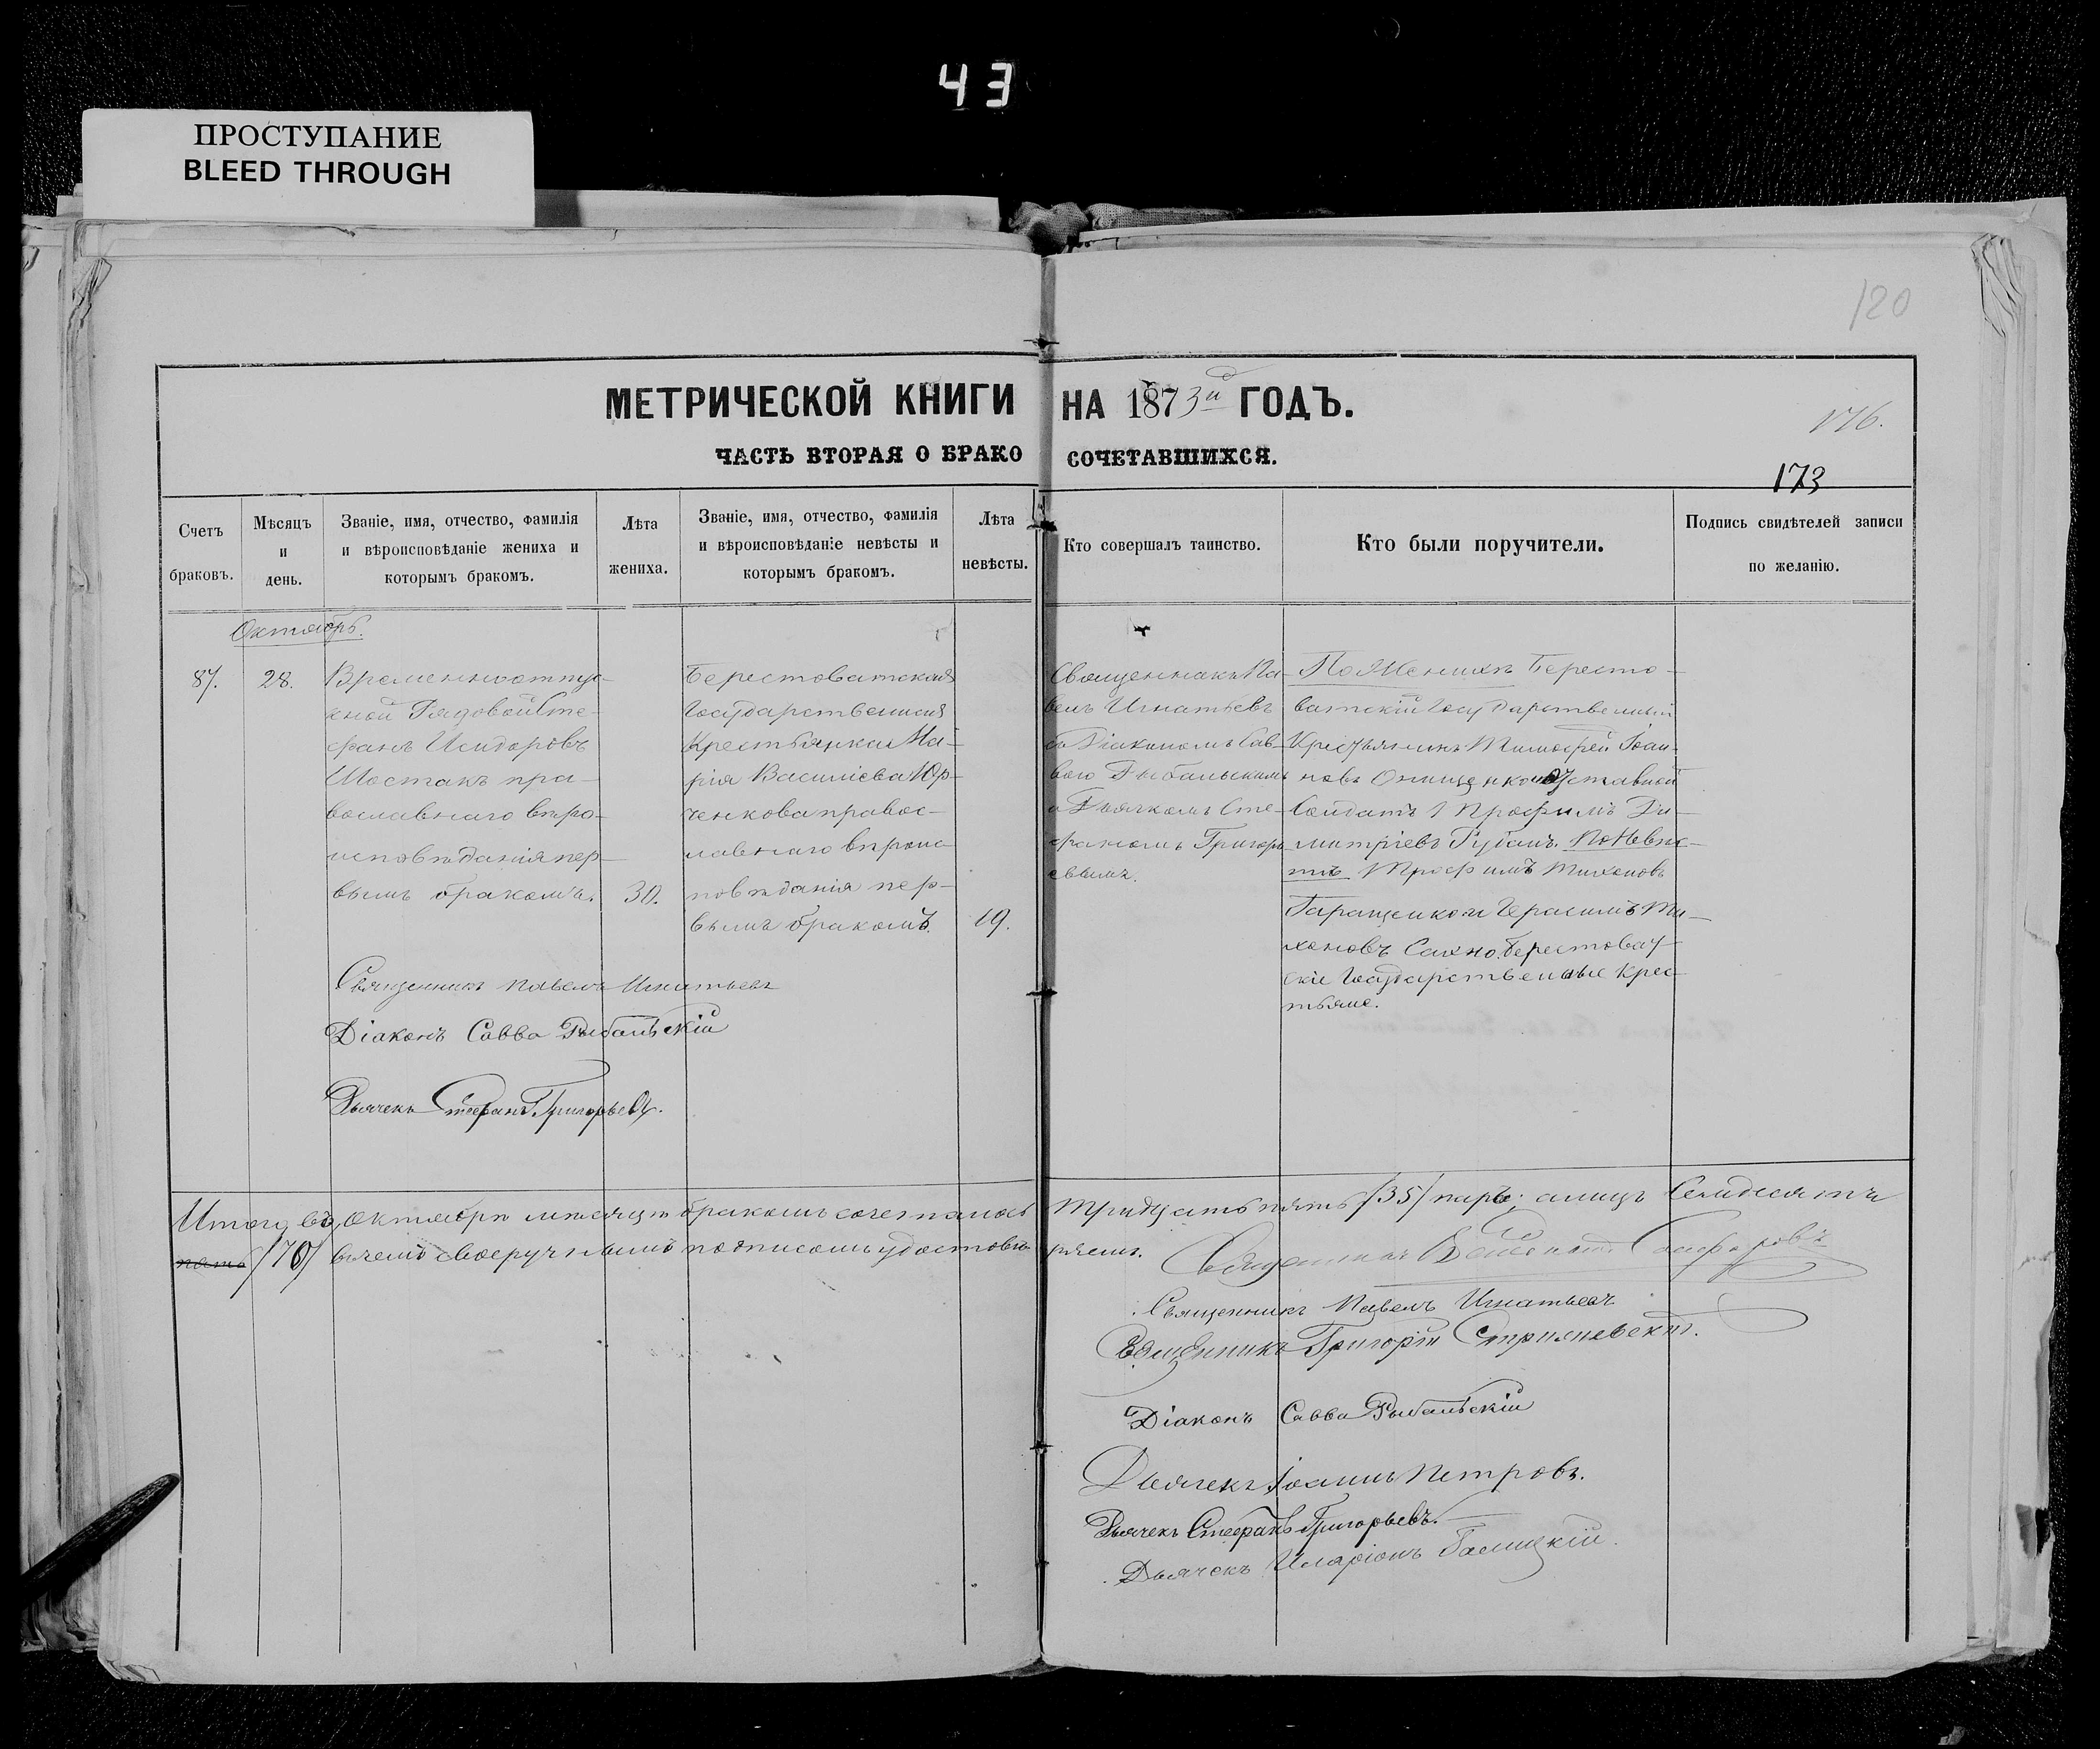 43
ПРОСТУПАНИЕ
BLEED THROUGH
120
МЕТРИЧЕСКОЙ КНИГИ НА 1873й ГОДЪ.
176.
ЧАСТЬ ВТОРАЯ О БРАКОСОЧЕТАВШИХСЯ.
173
Счетъ браковъ.
Мѣсяцъ и день.
Званіе, имя, отчество, фамилія и вѣроисповѣданіе жениха и которымъ бракомъ.
Лѣта жениха.
Званіе, имя, отчество, фамилія и вѣроисповѣданіе невѣсты и которымъ бракомъ.
Лѣта невѣсты.
Кто совершалъ таинство.
Кто были поручители.
Подпись свидѣтелей записи по желанію.
Октябрь.
87.
28.
Временноотпус-
кной Рядовой Сте-
фанъ Исидоровъ
Шостакъ пра-
вославнаго вѣро-
исповѣданія пер-
вымъ бракомъ.
30.
Берестоватская
Государственная
Крестьянка Ма-
рія Василіева Юр-
ченкова правос-
лавнаго вѣроис-
повѣданія пер-
вымъ бракомъ.
19.
Священникъ Па-
велъ Игнатьевъ
съ Діакономъ Сав-
вою Рыбальскимъ
и Дьячкомъ Сте-
фаномъ Григорь-
евымъ.
По Женихѣ Бересто-
ватскій Государственный
Крестьянинъ Тимофей Іоан-
новъ Онищенко и Отставной
Солдатъ Трофимъ Ди-
митріевъ Губалъ. По Невѣс-
тѣ Трофимъ Тихоновъ
Геращенко и Герасимъ Ти-
хоновъ Сахно. Берестоват-
скіе Государственные Крес-
тьяне.
Священникъ Павелъ Игнатьевъ
Діаконъ Савва Рыбальскій
Дьячекъ Стефанъ Григорьевъ.
Итого въ Октябрѣ мѣсяцѣ бракомъ сочеталось тридцать пять /35/ паръ; а лицъ Семьдесятъ
пять /70/ въ чемъ своеручнымъ подписомъ удостовѣряемъ.
Священникъ
Священникъ Павелъ Игнатьевъ
Священникъ Григорій
Діаконъ Савва Рыбальскій
Дьячекъ Іоаннъ Петровъ.
Дьячекъ Стефанъ Григорьевъ.
Дьячекъ Иларіонъ Галицкій.